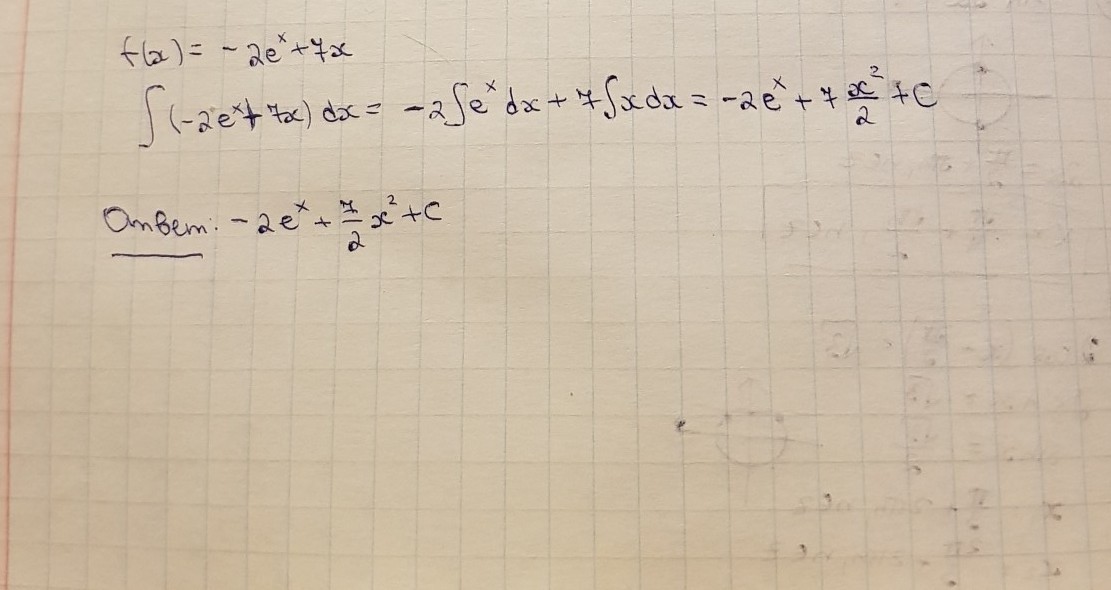 f(x) = -2eˣ + 7x
∫(-2eˣ + 7x) dx = -2∫eˣ dx + 7∫x dx = -2eˣ + 7 x²/2 + C
Ответ: -2eˣ + 7/2 x² + C